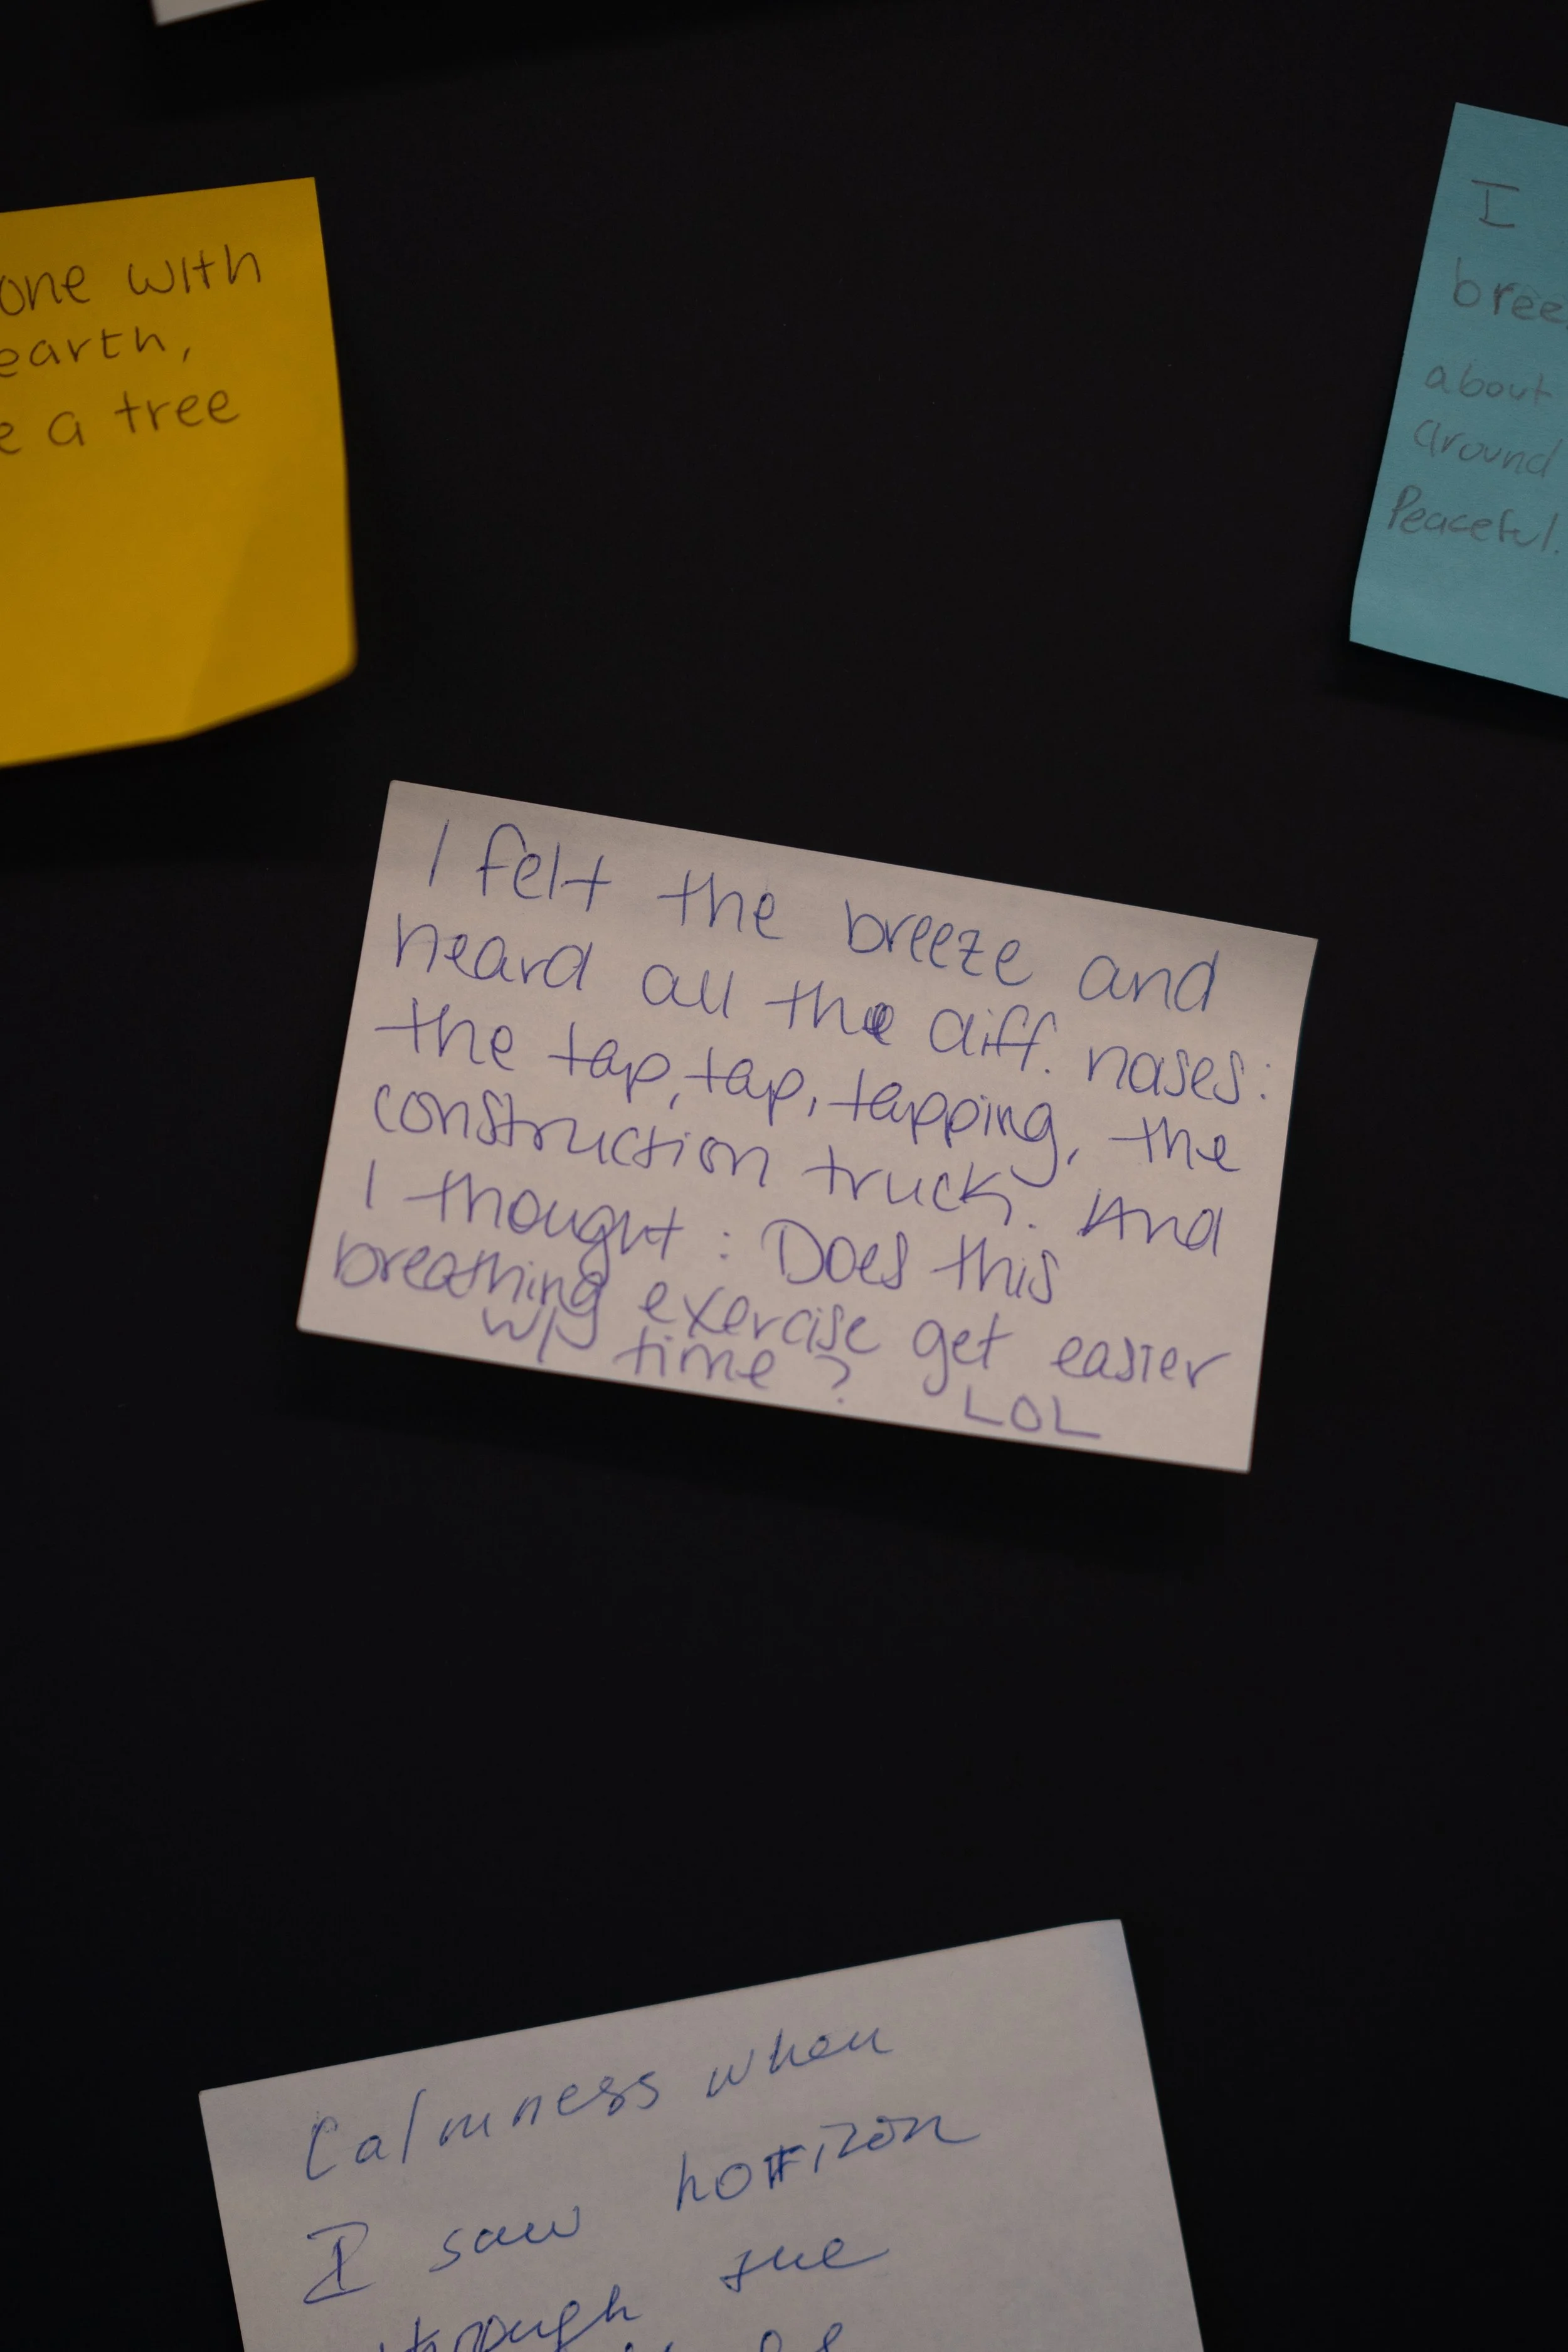 one with
earth,
e a tree
I
bree
about
around
Peaceful.
I felt the breeze and
heard all the diff. noises:
the tap, tap, tapping, the
construction truck. And
I thought: Does this
breathing exercise get easier
w/ time? LOL
Calmness when
I saw horizon
through the